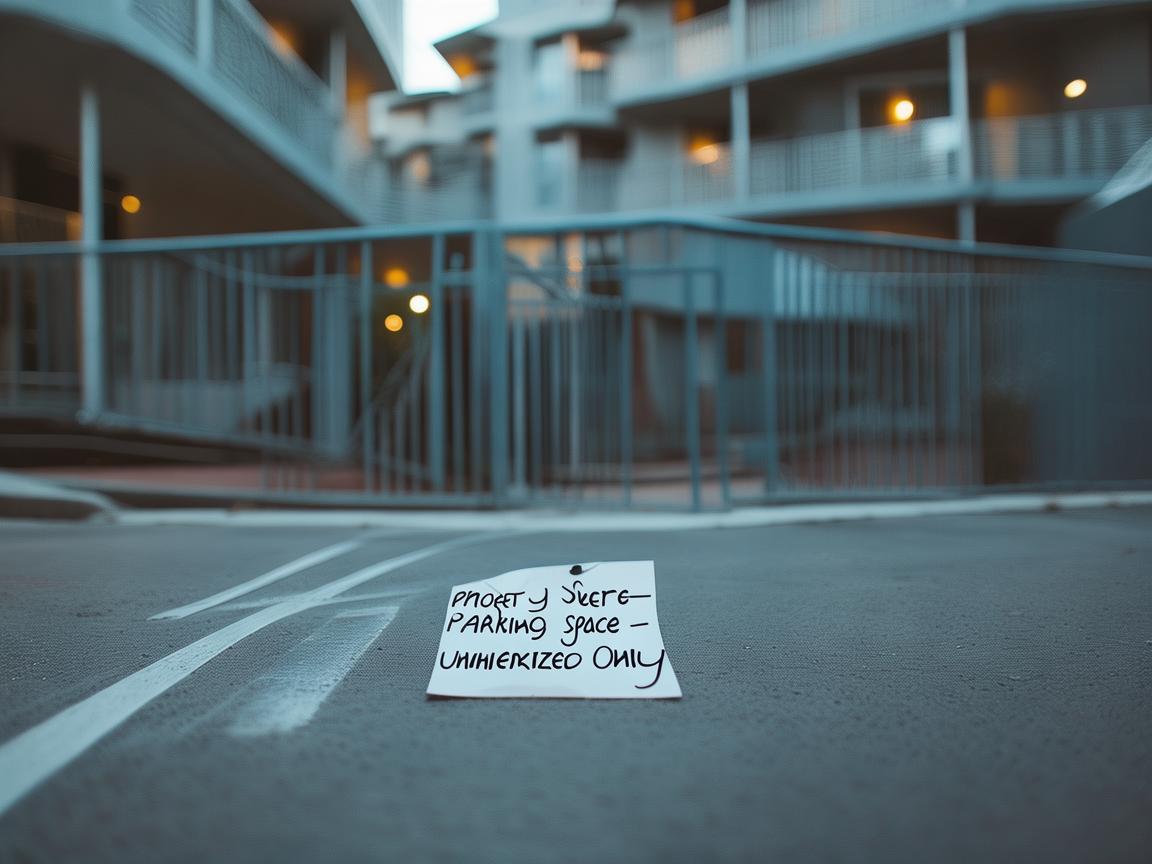 PHOGET y SKERE—
PARKING SPACE —
UNIHIEKIZED ONLY